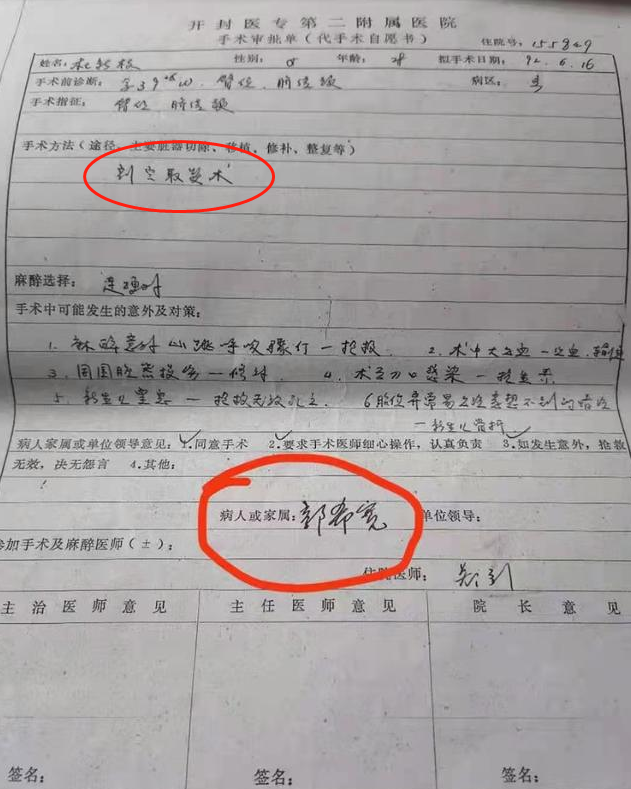 开封医专第二附属医院
手术审批单（代手术自愿书） 住院号：155849
姓名：杜新枝 性别：♀ 年龄：28 拟手术日期：92.6.16
手术前诊断：孕39⁺⁶W、臀位、脐绕颈 病区：
手术指征： 臀位 脐绕颈
手术方法（途径、主要脏器切除、移植、修补、整复等）
剖宫取婴术
麻醉选择：连硬外
手术中可能发生的意外及对策：
1. 麻醉意外 心跳呼吸骤停—抢救 2. 术中大出血—止血、输血
3. 周围脏器损伤—修补 4. 术后刀口感染—抗生素
5. 新生儿窒息—抢救无效死亡 6胎位异常易
—新生儿骨折
病人家属或单位领导意见：1.同意手术 2.要求手术医师细心操作，认真负责 3.如发生意外，抢救
无效，决无怨言 4.其他：
病人或家属：郭希宽 单位领导：
参加手术及麻醉医师（±）：
住院医师：
主治医师意见 主任医师意见 院长意见
签名： 签名： 签名：